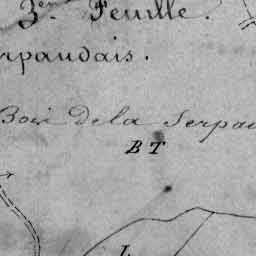 3.er Feuille.
rpaudais.
Bois de la Serpau
B T
L